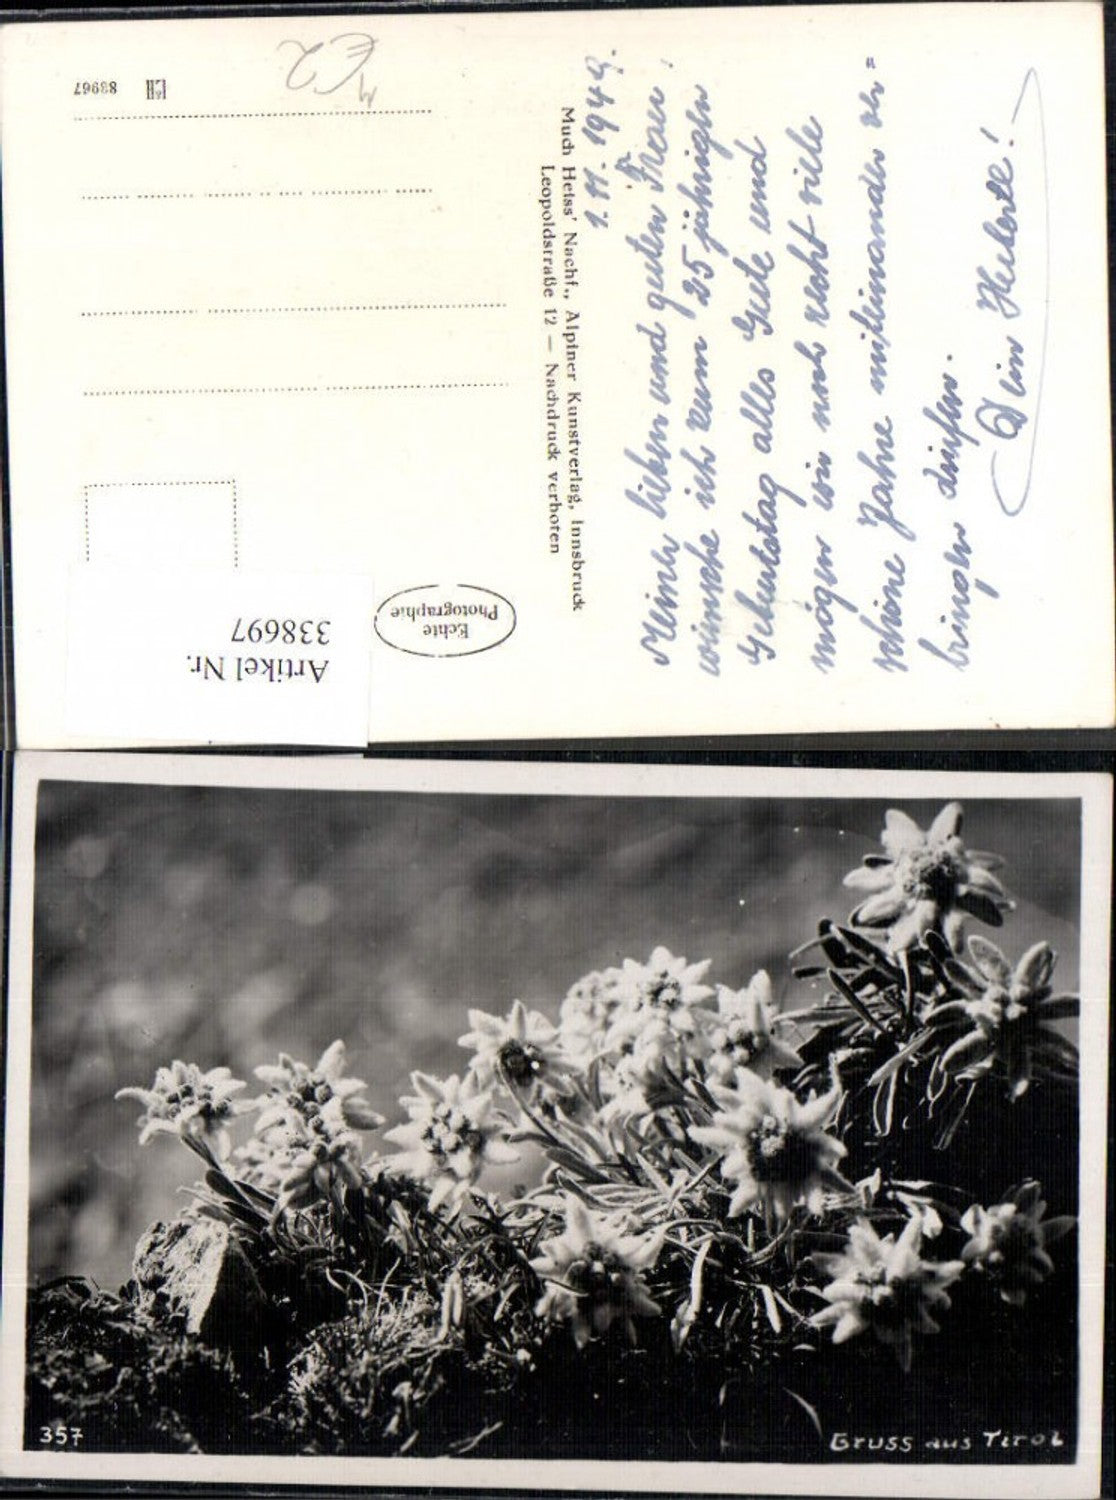 1.11.1949.
Meiner lieben und guten Frau!
wünsche ich zum 25 jährigen
Geburtstag alles Gute und
mögen wir noch recht viele
schöne Jahre miteinander ver"
bringen dürfen.
Dein Huberte!
Much Heiss' Nachf., Alpiner Kunstverlag, Innsbruck
Leopoldstraße 12 — Nachdruck verboten
Echte
Photographie
Artikel Nr.
338697
83967
357
Gruss aus Tirol